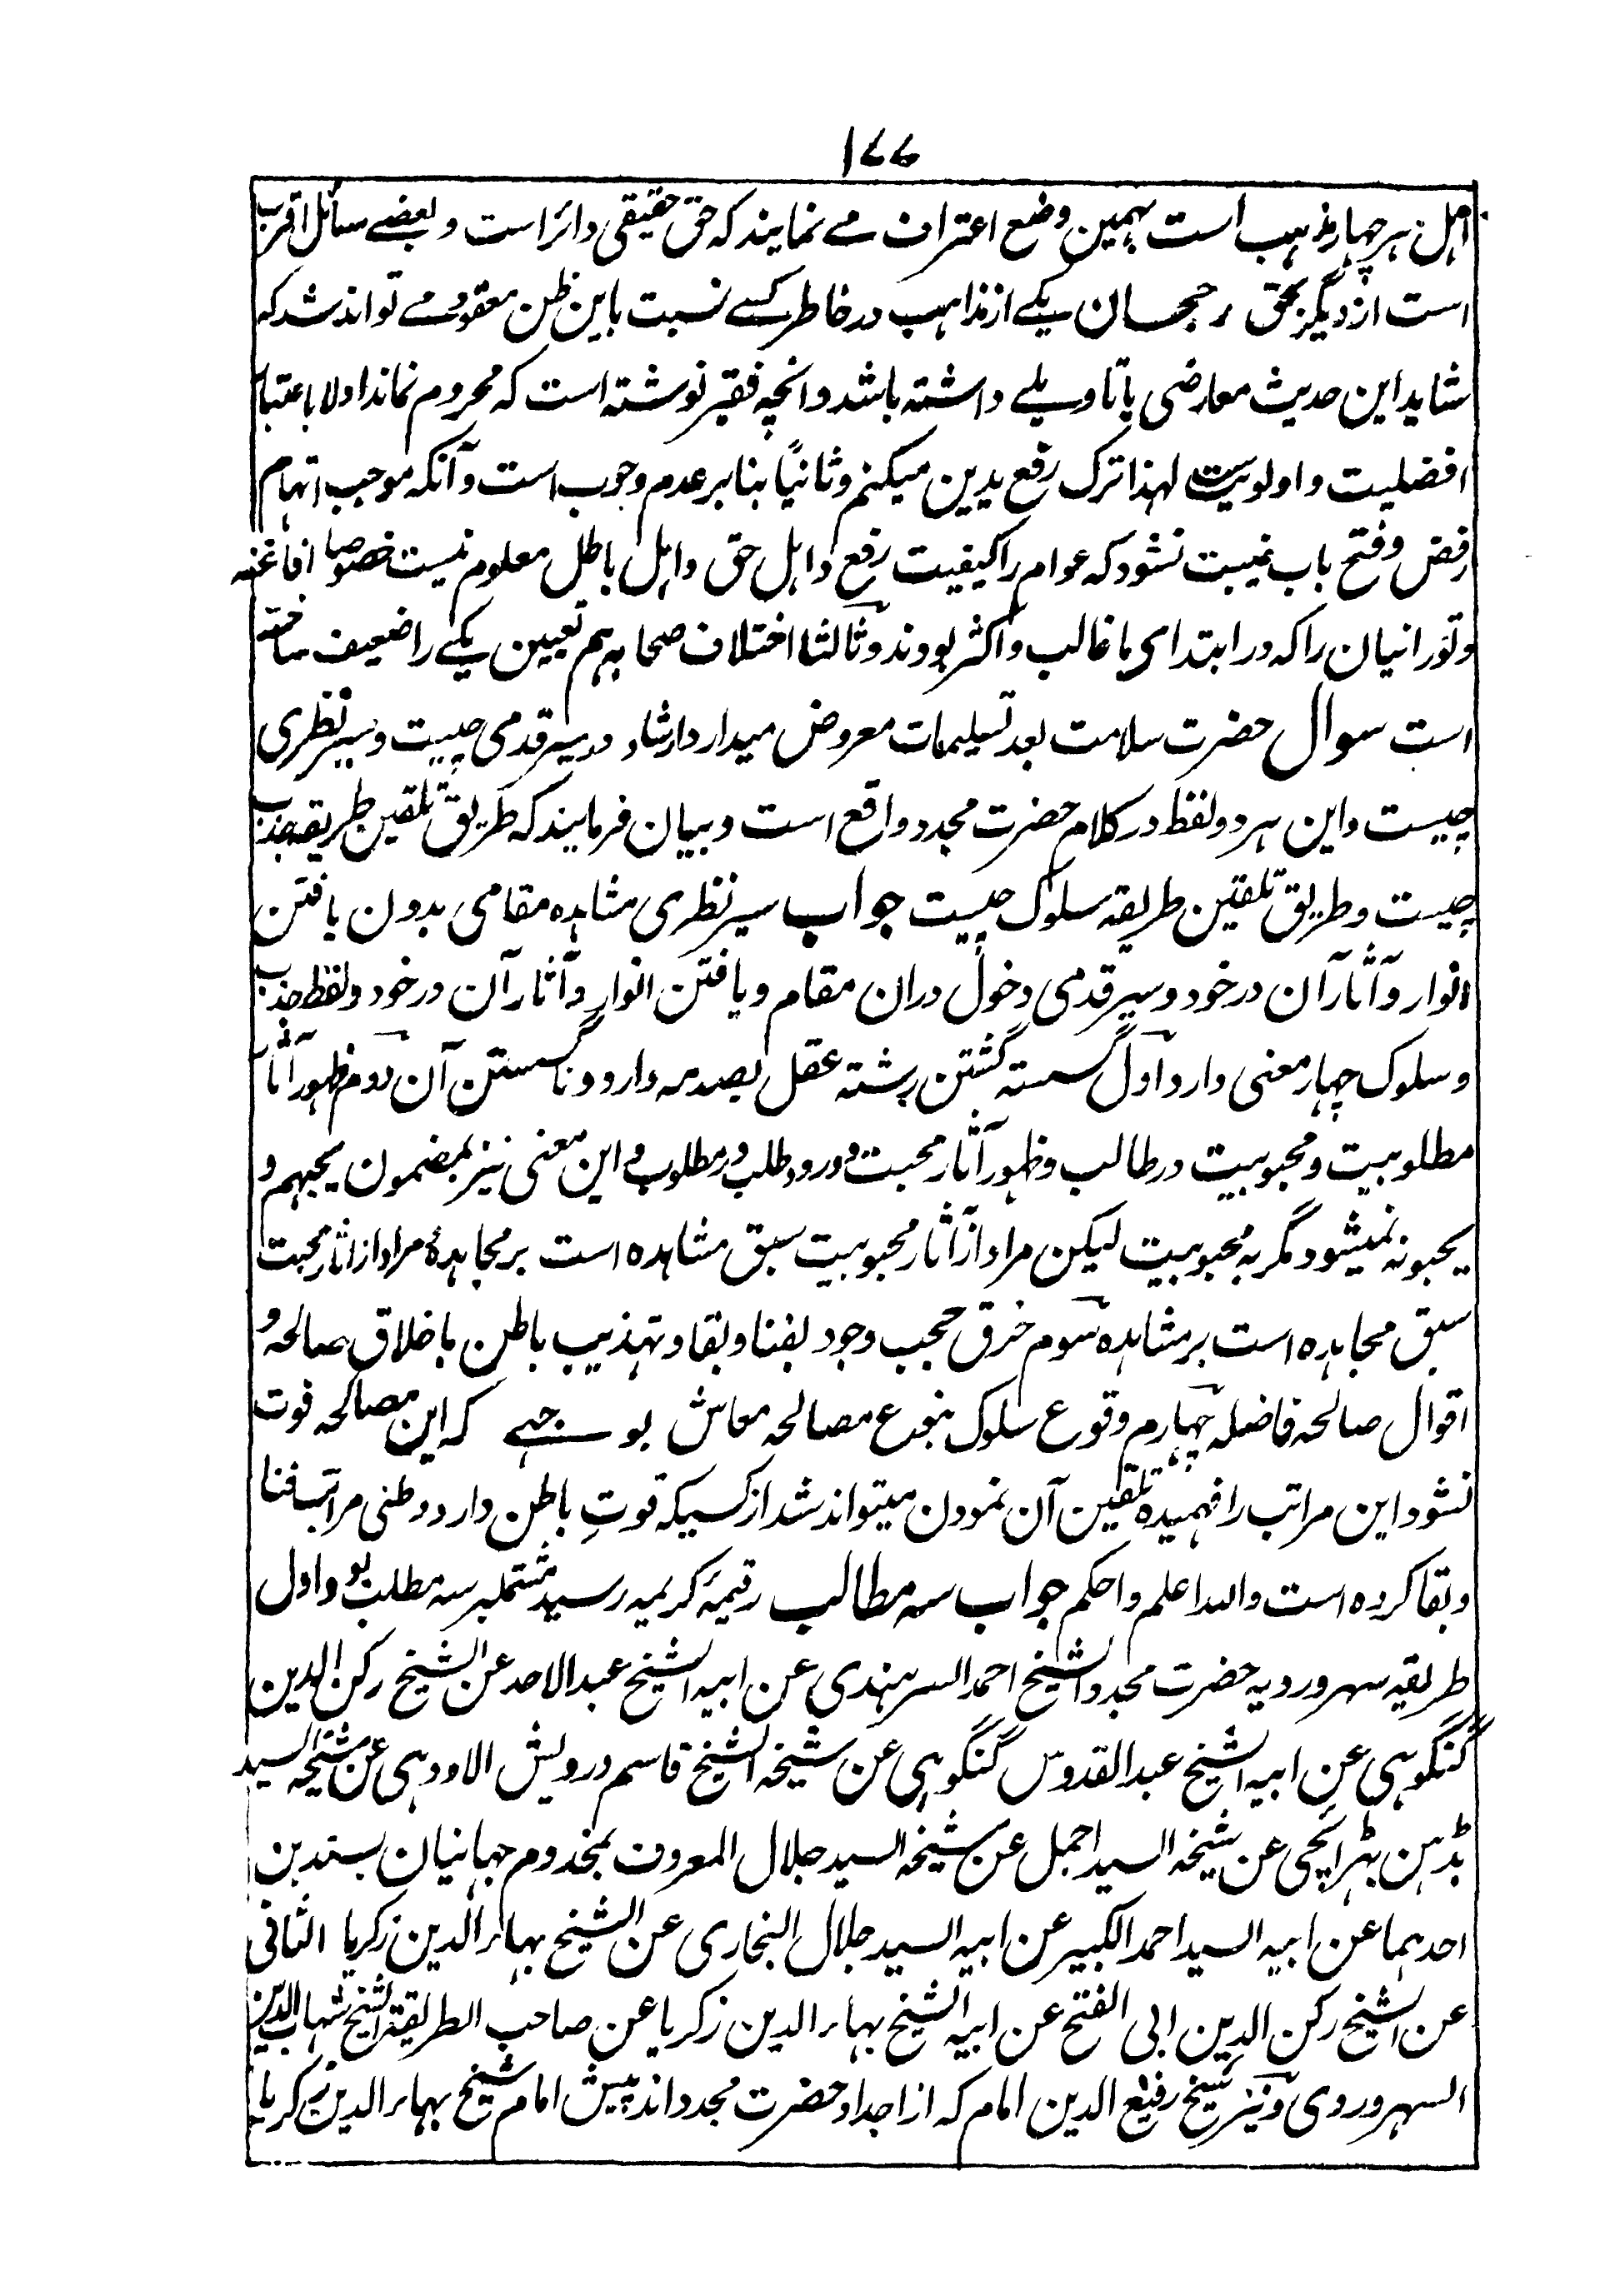 ۱۷۷
اهل هر چهار مذهب است بهمین وضع اعتراف مے نمایند که حق حقیقی دائر است و بعضے مسائل اقرب
است از دیگر بحق رجحان یکے از مذاهب در خاطر کسے نسبت باین ظن معقود مے تواند شد که
شاید این حدیث معارضی یا تاویلے داشته باشد و انچه فقیر نوشته است که محروم نماند اولا باعتبار
افضلیت و اولویت لهذا ترک رفع یدین میکنم و ثانیًا بنا بر عدم وجوب است و آنکه موجب اتهام
رفض و فتح باب غیبت نشود که عوام را کیفیت رفع و اهل حق و اهل باطل معلوم نیست خصوصا افاغنه
و تورانیان را که در ابتدای ما غالب و اکثر بودند و ثالثا اختلاف صحابه هم تعیین یکے را ضعیف ساخته
است سوال حضرت سلامت بعد تسلیمات معروض میدارد ارشاد سیر قدمی چیست و سیر نظری
چیست و این هر دو لفظ در کلام حضرت مجدد واقع است و بیان فرمایند که طریق تلقین طریقه جذب
چیست و طریق تلقین طریقه سلوک چیست جواب سیر نظری مشاهده مقامی بدون یافتن
انوار و آثار آن در خود و سیر قدمی دخول دران مقام و یافتن انوار و آثار آن در خود و لفظ جذب
و سلوک چهار معنی دارد اول گسسته گشتن رشته عقل بصدمه وارد و ناگسستن آن دوم ظهور آثار
مطلوبیت و محبوبیت در طالب و ظهور آثار محبت و ورود طلب در مطلوب و این معنی نیز بمضمون یحبهم و
یحبونه نمیشود مگر به محبوبیت لیکن مراد از آثار محبوبیت سبق مشاهده است بر مجاهدهٔ مراد از اثار محبت
سبق مجاهده است بر مشاهده سوم خرق حجب وجود بفنا و بقا و تهذیب باطن باخلاق صالحه و
اقوال صالحه فاضله چهارم وقوع سلوک بنوع مصالحه معاش بوجهے که این مصالحه فوت
نشود این مراتب را فهمیده تلقین آن نمودن میتواند شد از کسیکه قوتِ باطن دارد و طی مراتب فنا
و بقا کرده است والله اعلم و احکم جواب سه مطالب رقیمهٔ کریمه رسید مشتمل بر سه مطلب بود اول
طریقه سهروردیه حضرت مجدد الشیخ احمد السرهندی عن ابیه الشیخ عبد الاحد عن الشیخ رکن الدین
گنگوهی عن ابیه الشیخ عبد القدوس گنگوهی عن شیخه الشیخ قاسم درویش الاودهی عن شیخه السید
بڈهن بهرائچی عن شیخه السید اجمل عن شیخه السید جلال المعروف بمخدوم جهانیان بسندین
احدهما عن ابیه السید احمد الکبیر عن ابیه السید جلال البخاری عن الشیخ بهاء الدین زکریا الثانی
عن الشیخ رکن الدین ابی الفتح عن ابیه الشیخ بهاء الدین زکریا عن صاحب الطریقة الشیخ شهاب الدین
السهروردی و نیز شیخ رفیع الدین امام که از اجداد حضرت مجدد اند پیش امام شیخ بهاء الدین زکریا